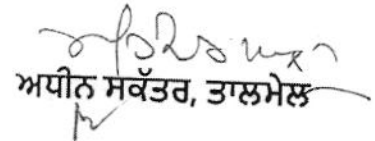 ਅਧੀਨ ਸਕੱਤਰ, ਤਾਲਮੇਲ